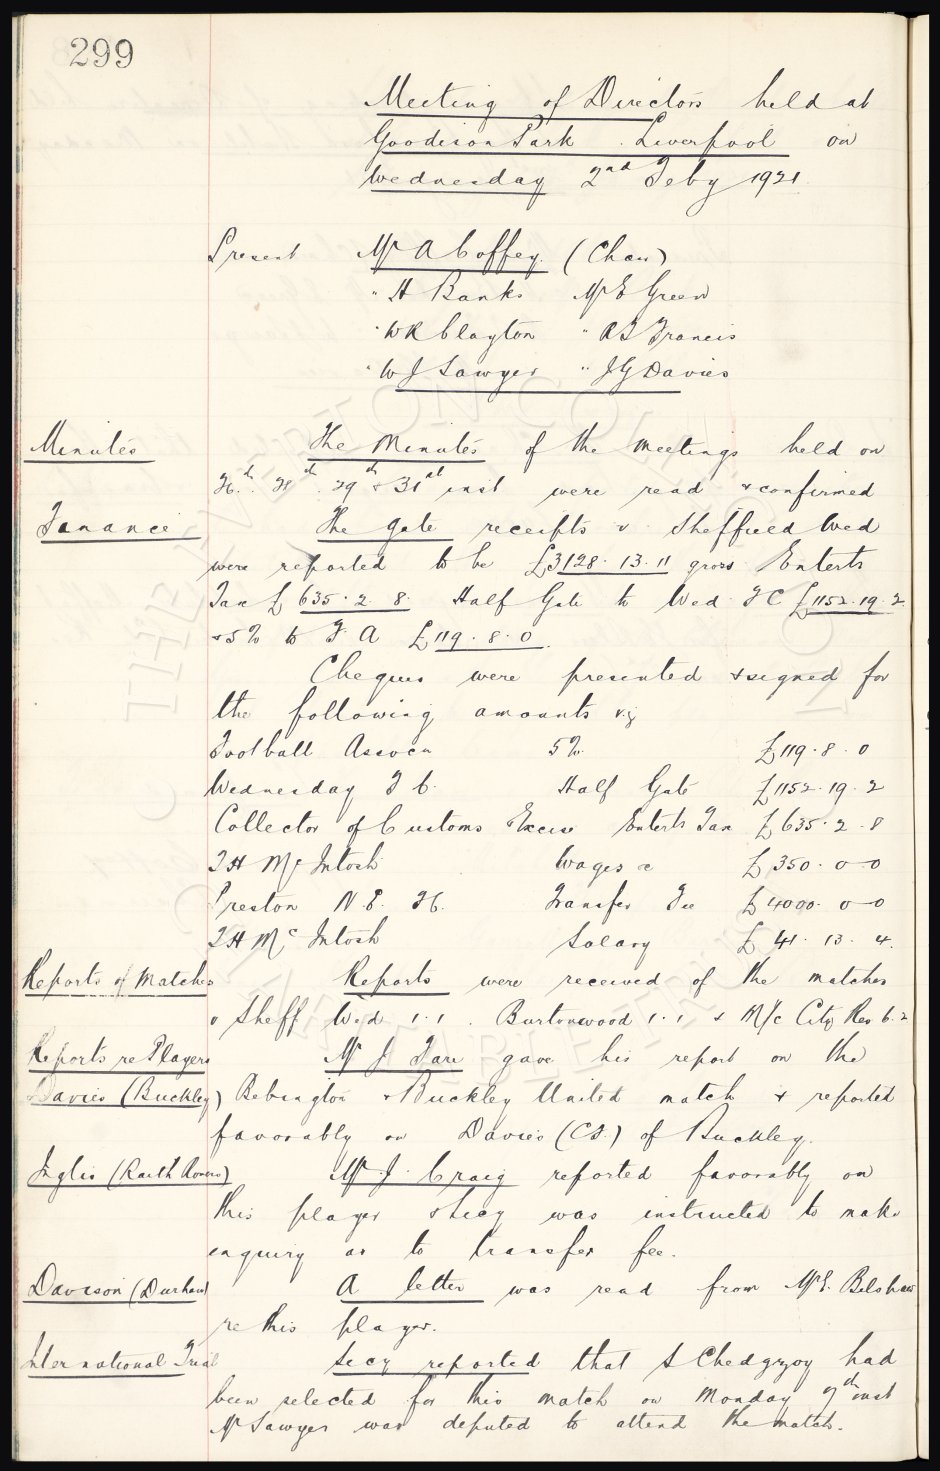 299
Meeting of Directors held at
Goodison Park Liverpool on
Wednesday 2nd Feby 1921.
Present Mr A Coffey. (Chair)
" H Banks Mr E Green
" W R Clayton " A T Francis
" W J Sawyer " J G Davies
Minutes The Minutes of the meetings held on
26th. 28th. 29th & 31st inst were read & confirmed
Finance The gate receipts v. Sheffield Wed
were reported to be £3128. 13. 11 gross Enterts
Tax £635. 2. 8. Half Gate to Wed F C £1152. 19. 2
& 5% to F. A £119. 8. 0.
Cheques were presented & signed for
the following amounts viz
Football Assocn 5% £119. 8. 0
Wednesday F C. Half Gate £1152. 19. 2
Collector of Customs Excise Enterts Tax £635. 2. 8
T H McIntosh Wages &c £350. 0-0
Preston N. E. FC. Transfer Fee £4000. 0-0
T H Mc Intosh Salary £41. 13. 4.
Reports of Matches Reports were received of the matches
v Sheff Wed 1.1. Burtonwood 1.1 & M/c City Res 6.2
Reports re Players Mr J Fare gave his report on the
Davies (Buckley) Bebington & Buckley United match & reported
favorably on Davies (CF.) of Buckley.
Inglis (Raith Rovers) Mr J. Craig reported favorably on
this player & Secy was instructed to make
enquiry as to transfer fee.
Davison (Durham) A letter was read from Mr E. Belshaw
re this player.
International Trial Secy reported that S Chedgzoy had
been selected for this match on Monday 7th inst
Mr Sawyer was deputed to attend the match.